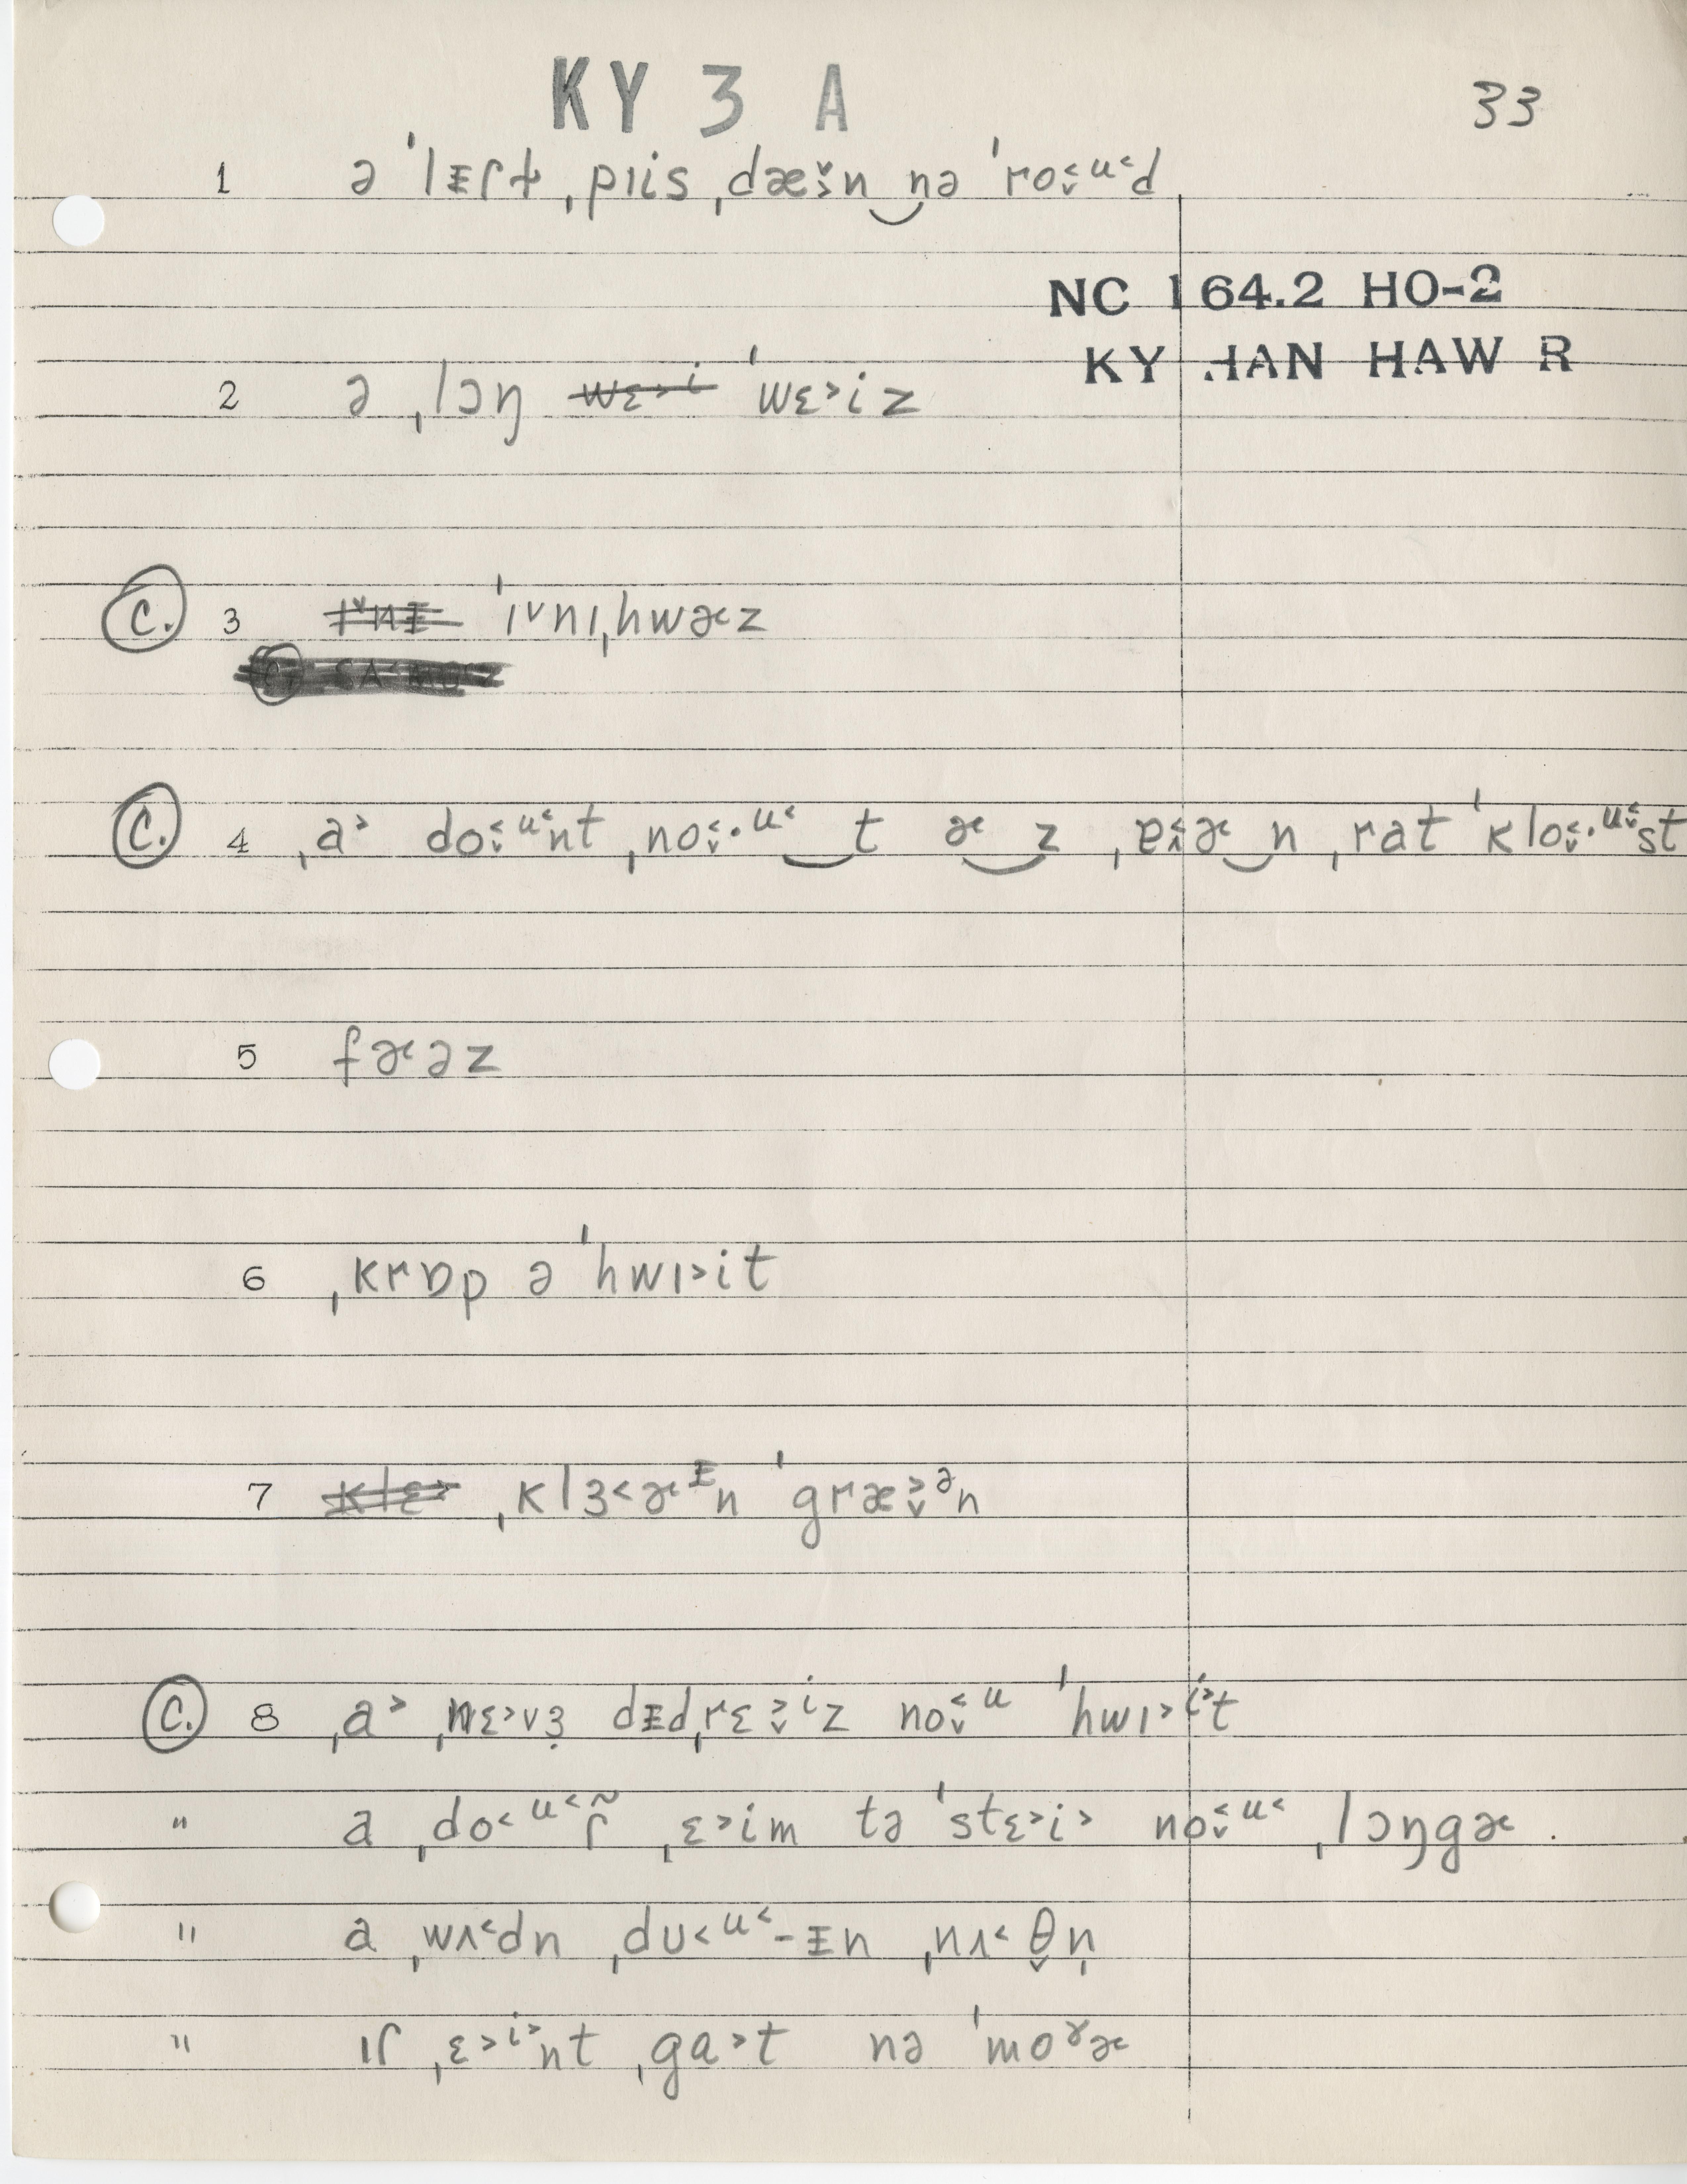 KY 3 A
33
1 ə ˈlᵻɾt ˌpɪis ˌdæ̬˂n‿nə ˈro̬˂ᵘ˂d
NC 164.2 HO-2
KY HAN HAW R
2 ə ˌlɔŋ ˈwɛ˃iz
C. 3 ˈɪ˅nɪˌhwɚz
C. 4 ˌa˃ do̬˂ᵘ˂nt ˌno̬˂·ᵘ˂‿t ɚ‿z ˌɚ‿n ˌrat ˈklo̬˂·ᵘ˂st
5 fɚəz
6 ˌkrɒp ə ˈhwɪ˃it
7 ˌklɜ˂ɚᵻn ˈgræ̬˃ᵊn
C. 8 ˌa˃ ˌnɛ˃vɜ̣ dᵻdˌrɛ̬˃ⁱz no̬˂ᵘ ˈhwɪ˃ⁱ˃t
" a ˌdo˂ᵘ˂ɾ̃ ˌɛ˃im tə ˈstɛ˃i˃ no̬˂ᵘ˂ ˌlɔŋgɚ .
" a ˌwʌ˂dn ˌdʊ˂ᵘ˂-ᵻn ˌnʌ˂θ̬ṇ
" ɪɾ ˌɛ˃ⁱ˃nt ˌga˃t nə ˈmoˠɚ